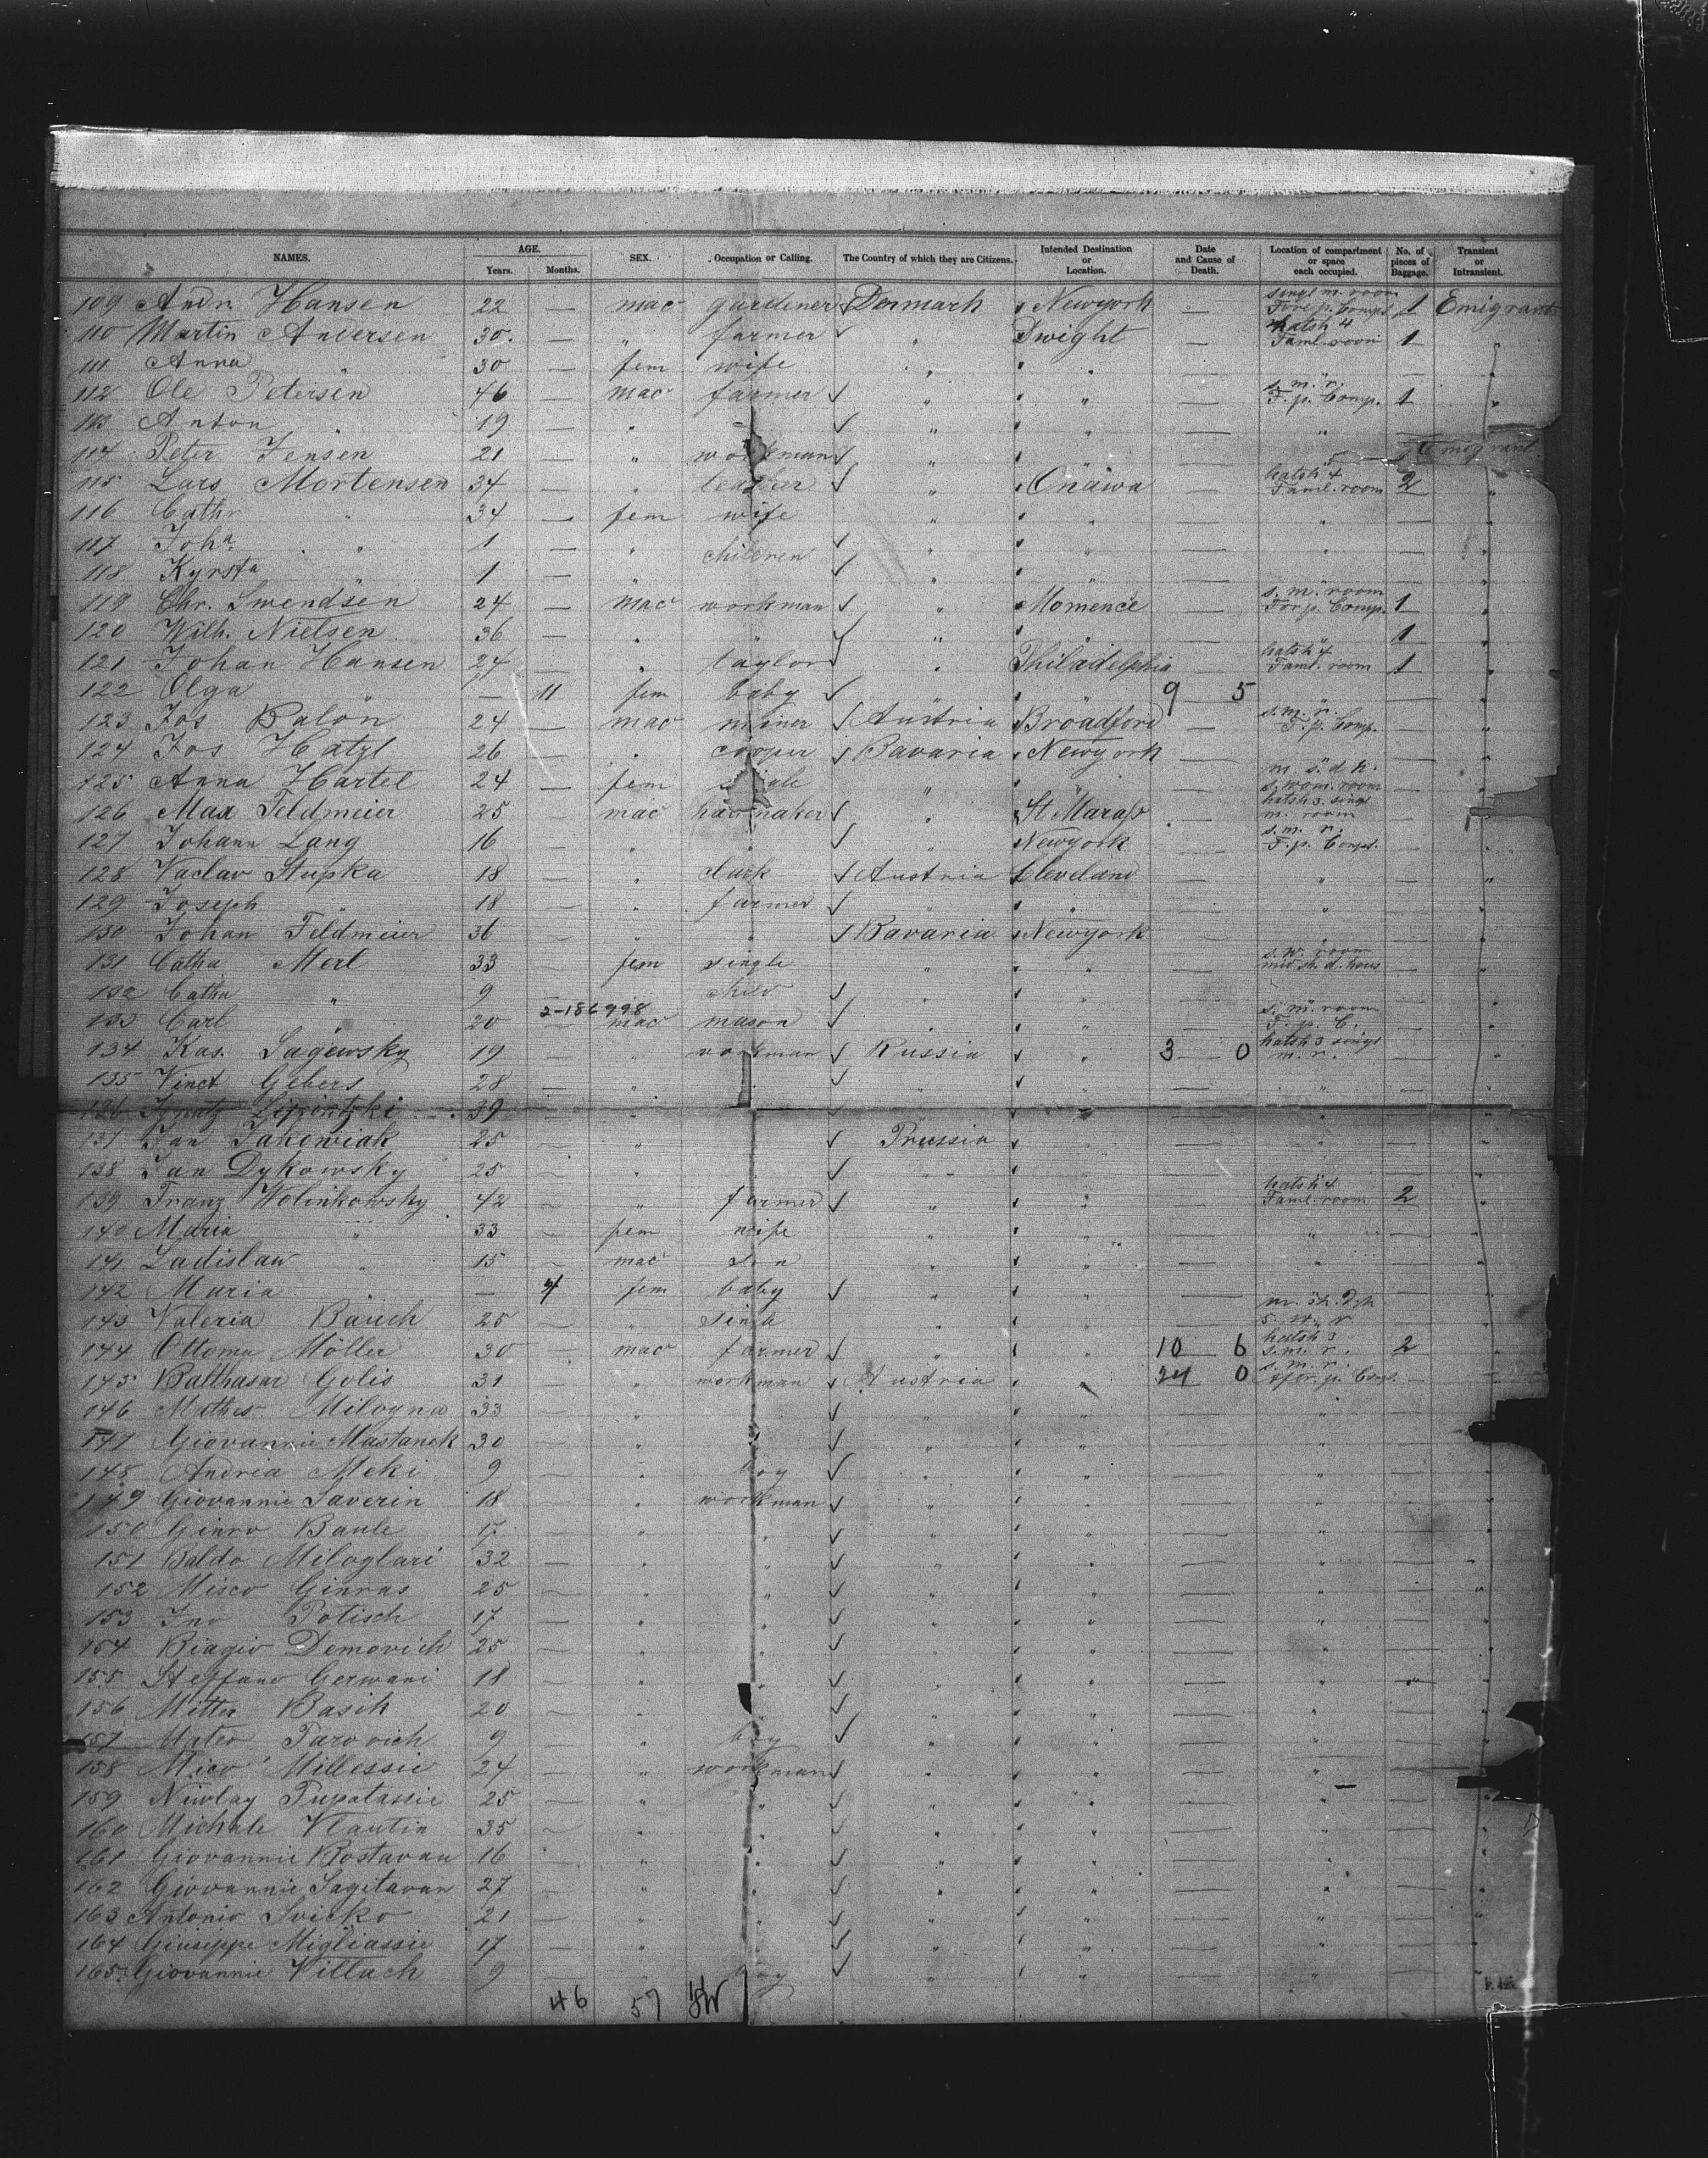 NAMES. AGE. Years. Months. SEX. Occupation or Calling. The Country of which they are Citizens. Intended Destination or Location. Date and Cause of Death. Location of compartment or space each occupied. No. of pieces of Baggage. Transient or Intransient.
109 Andr. Hansen 22 — mac gardener Denmark Newyork — singl m. room Fore p. Comp. 1 Emigrant
110 Martin Andersen 30. — " farmer " Dwight — hatsh 4 Faml. room 1 "
111 Anna " 30 — fem wife " " — " — "
112 Ole Petersen 46 — mac farmer " " — s. m. r. F. p. Comp. 1 "
113 Anton " 19 — " " " — " — "
114 Peter Jensen 21 — " workman " " — Emigrant
115 Lars Mortensen 34 — " " Onawa — hatsh 4 Faml. room 2 "
116 Cathr " 34 — fem wife " " — " — "
117 Joha. " 1 — " children " " — " — "
118 Kyrsta " 1 — " " " — " — "
119 Chr. Swendsen 24 — mac workman " Momence — s. m. room For p. Comp. 1 "
120 Wilh. Nielsen 36 — " " " " — 1 "
121 Johan Hansen 24 — " taylor " Philadelphia — hatsh 4 Faml. room 1 "
122 Olga " — 11 fem baby " " 9 5 " — "
123 Jos Balon 24 — mac miner Austria Broadford — s. m. r. F. p. Comp. — "
124 Jos Hatzl 26 — " cooper Bavaria Newyork — " — "
125 Anna Hartel 24 — fem " " — m. s. d. h. s. wom. room — "
126 Max Feldmeier 25 — mac " — hatsh 3. singl m. room — "
127 Johann Lang 16 — " " " Newyork — s. m. r. F. p. Comp. — "
128 Vaclav Stupka 18 — " clark Austria Cleveland — " — "
129 Joseph " 18 — " farmer " " — " — "
130 Johan Feldmeier 36 — " " Bavaria Newyork — " — "
131 Catha Merl 33 — fem single " " — s. w. room mid sh. d. hous — "
132 Catha " 9 child " " — " — "
2-186998
133 Carl " 20 mac mason " " — s. m. room F. p. C. — "
134 Kas. Sagewsky 19 — " workman Russia " 3 0 hatsh 3 singl m. r. — "
135 Vinct Gebers 28 — " " " " — " — "
136 Ignatz 39 — " " " — " — "
137 Jan Jakowiak 25 — " Prussia — " — "
138 Jan Dykowsky 25 — " " — " — "
139 Franz Wolinkowsky 42 — " farmer " " — hatsh 4 Faml room 2 "
140 Maria " 33 fem wife " " — " — "
141 Ladislaw " 15 — mac son " " — " — "
142 Maria " — 4 fem baby " " — " — "
143 Valeria Bauch 25 — " " " — s. w. r — "
144 Ottoma Möller 30 — mac farmer " " 10 6 hatsh 3 s. m. r. 2 "
145 Balthasar Golis 31 — " workman Austria " 24 0 s. m. r. — "
146 Mathes Milogna 33 — " " " — " — "
147 Giovannie Mastanek 30 — " " " — " — "
148 Andria Meki 9 — " boy " " — " — "
149 Giovannie Saverin 18 — " workman " " — " — "
150 Ginro Baule 17 — " " " " — " — "
151 Baldo Miloglari 32 — " " " " — " — "
152 Misco Ginras 25 — " " " " — " — "
153 Ino Potisch 17 — " " " " — " — "
154 Biagio Demovich 25 — " " " " — " — "
155 Steffano Gerwani 18 — " " " " — " — "
156 Mitter Basih 20 — " " " " — " — "
157 Mateo Parovich 9 — " boy " " — " — "
158 Mico Millessie 24 — " workman " " — " — "
159 Niwlay Pupatassie 25 — " " " " — " — "
160 Michale Vlautin 35 — " " " " — " — "
161 Giovannie Bostavan 16 — " " " " — " — "
162 Giovannie Sagitavan 27 — " " " " — " — "
163 Antonio Svicko 21 — " " " " — " — "
164 Giuseppe Migliassie 17 — " " " " — " — "
165 Giovannie Villach 9 — " boy " " — " — "
46 57